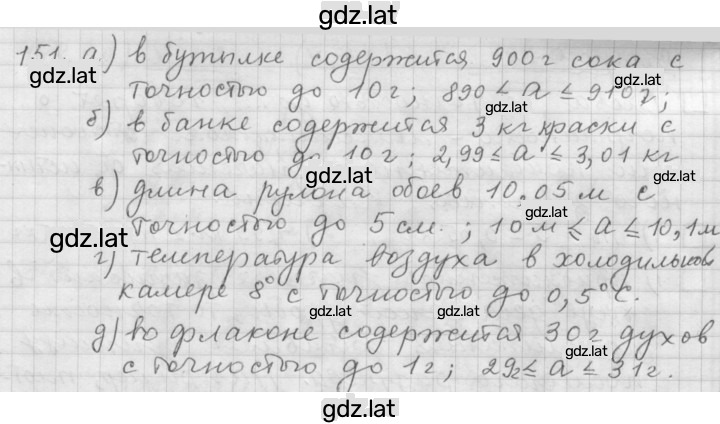 gdz.lat
151. а) в бутылке содержится 900 г сока с
gdz.lat
точностью до 10 г; 890 ≤ а ≤ 910 г;
gdz.lat
gdz.lat
б) в банке содержится 3 кг краски с
gdz.lat
точностью до 10 г; 2,99 ≤ а ≤ 3,01 кг
gdz.lat
в) длина рулона обоев 10,05 м с
gdz.lat
точностью до 5 см.; 10 м ≤ а ≤ 10,1 м
gdz.lat
gdz.lat
г) температура воздуха в холодильной
камере 8° с точностью до 0,5°С.
gdz.lat
gdz.lat
д) во флаконе содержится 30 г духов
gdz.lat
с точностью до 1 г; 29г ≤ а ≤ 31 г.
gdz.lat